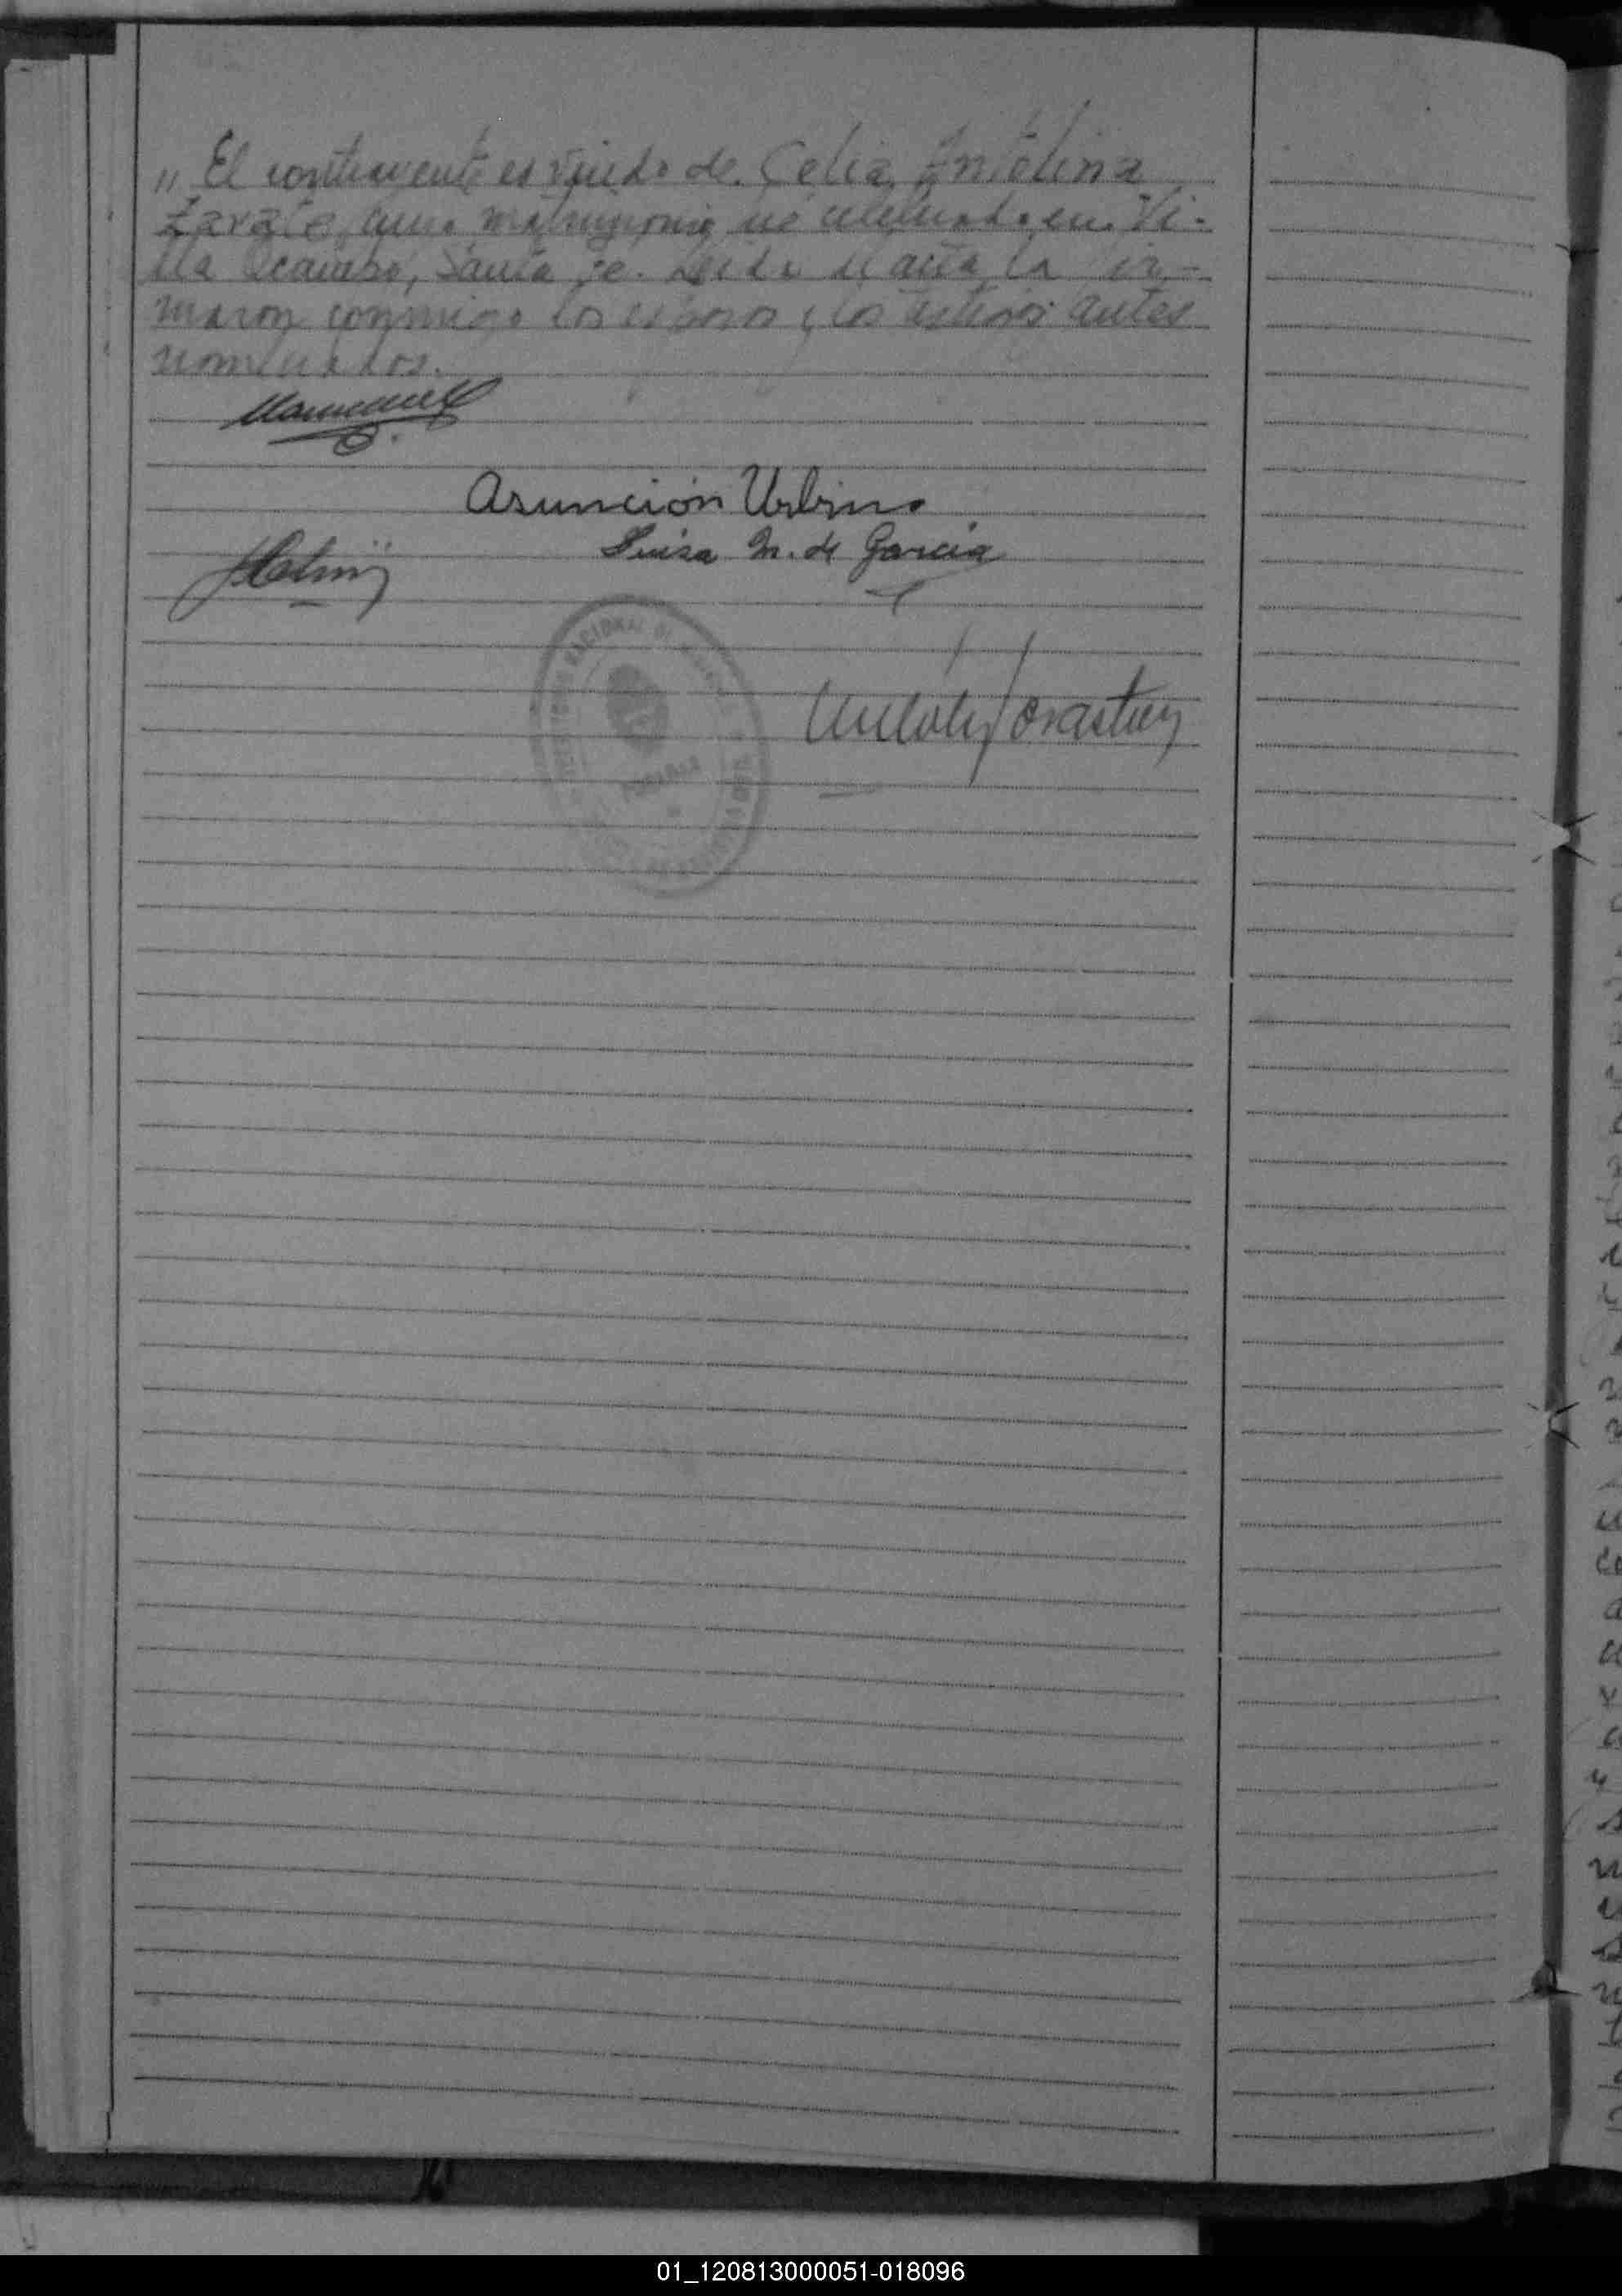 " El contrayente es viudo de Celia Antolina
Zarate, cuyo matrimonio fué celebrado en Vi-
lla Ocampo, Santa Fe. Leída el acta la fir-
maron conmigo los esposos y los testigos antes
nombrados.
Asunción Urbino
Luisa M. de García
NACIONAL DE
01_120813000051-018096